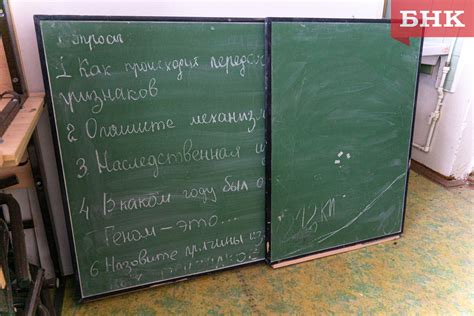 БНК
Вопросы
1 Как происходит передa
признаков
2 Опишите механизм
3 Наследственная и
4 В каком году был о
Геном - это...
6 Назовите причины из